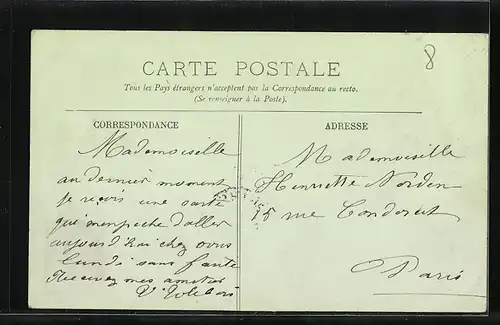 8
CARTE POSTALE
Tous les Pays étrangers n'acceptent pas la Correspondance au recto.
(Se renseigner à la Poste).
CORRESPONDANCE
Mademoiselle
au dernier moment
je reçois une carte
qui m'enpeche d'aller
aujourd'hui chez vous
lundi sans faute
Recevez mes amitiés
ADRESSE
Mademoiselle
Henriette Norden
15 rue Condorcet
Paris